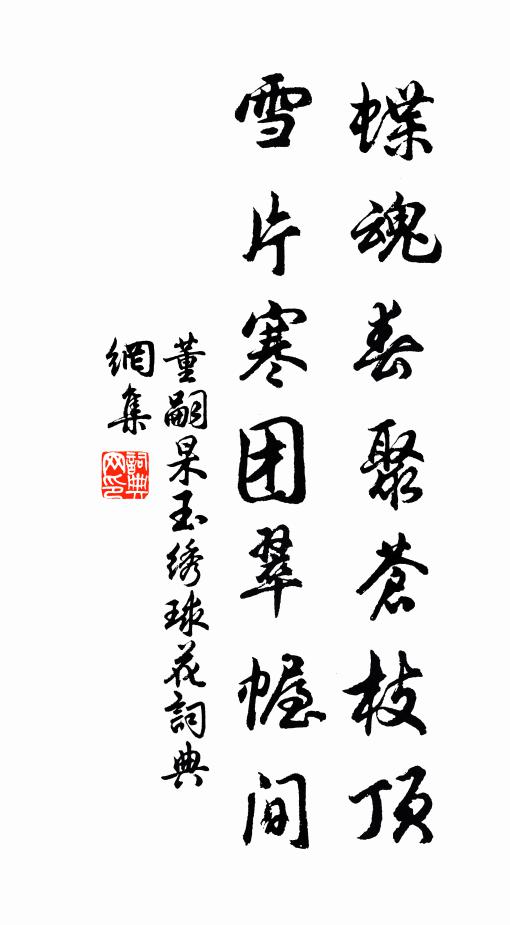 蝶魂春聚苍枝顶
雪片寒团翠幄间
董嗣杲玉绣球花詞典
網集
詞典网印